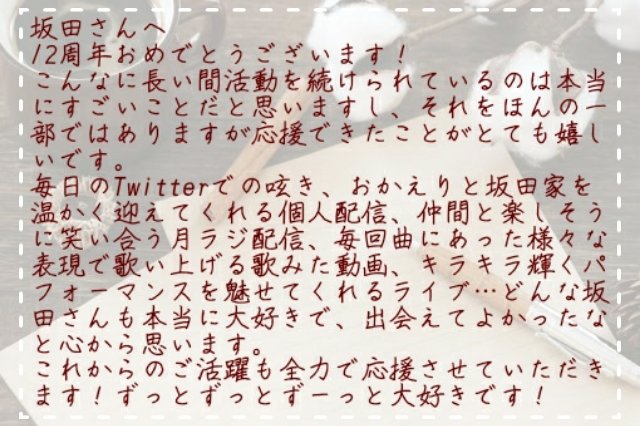 坂田さんへ
12周年おめでとうございます！
こんなに長い間活動を続けられているのは本当
にすごいことだと思いますし、それをほんの一
部ではありますが応援できたことがとても嬉し
いです。
毎日のTwitterでの呟き、おかえりと坂田家を
温かく迎えてくれる個人配信、仲間と楽しそう
に笑い合う月ラジ配信、毎回曲にあった様々な
表現で歌い上げる歌みた動画、キラキラ輝くパ
フォーマンスを魅せてくれるライブ…どんな坂
田さんも本当に大好きで、出会えてよかったな
と心から思います。
これからのご活躍も全力で応援させていただき
ます！ずっとずっとずーっと大好きです！